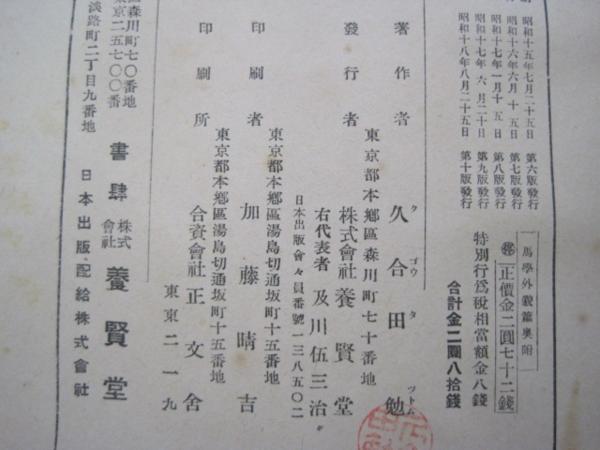 昭和十五年七月二十五日 第六版發行
昭和十六年六月十五日 第七版發行
昭和十七年一月十五日 第八版發行
昭和十七年六月二十日 第九版發行
昭和十八年八月二十五日 第十版發行
馬學外貌篇奧附
正價金二圓七十二錢
特別行爲稅相當額金八錢
合計金二圓八拾錢
著作者 久合田勉
クゴウタツトム
東京都本鄕區森川町七十番地
發行者 株式會社養賢堂
右代表者 及川伍三治
日本出版會々員番號一三八五〇二
東京都本鄕區湯島切通坂町十五番地
印刷者 加藤晴吉
東京都本鄕區湯島切通坂町十五番地
印刷所 合資會社正文舍
東東二一九
區森川町七〇番地
東京二五七〇〇番
書肆 株式會社 養賢堂
淡路町二丁目九番地
日本出版配給株式會社